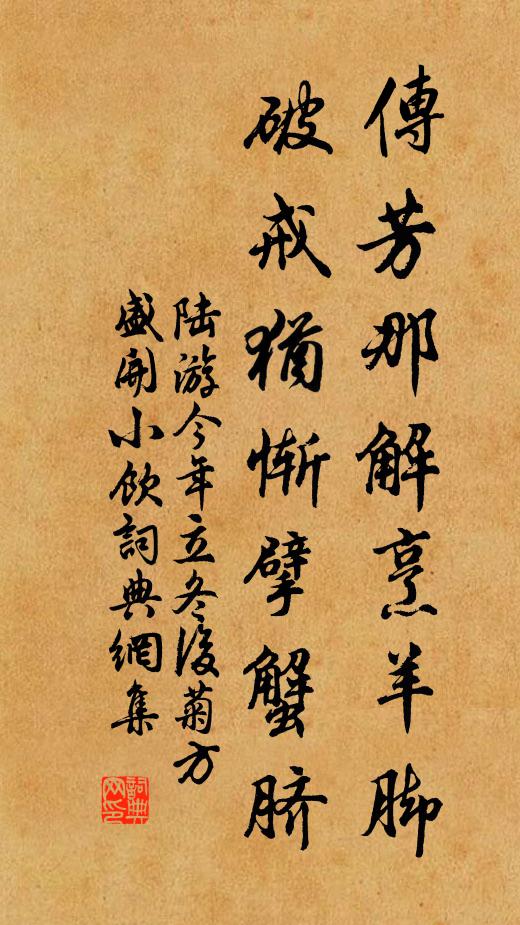 傳芳那解烹羊脚
破戒猶慚擘蟹脐
陆游今年立冬後菊方
盛開小飲詞典網集
詞典网印